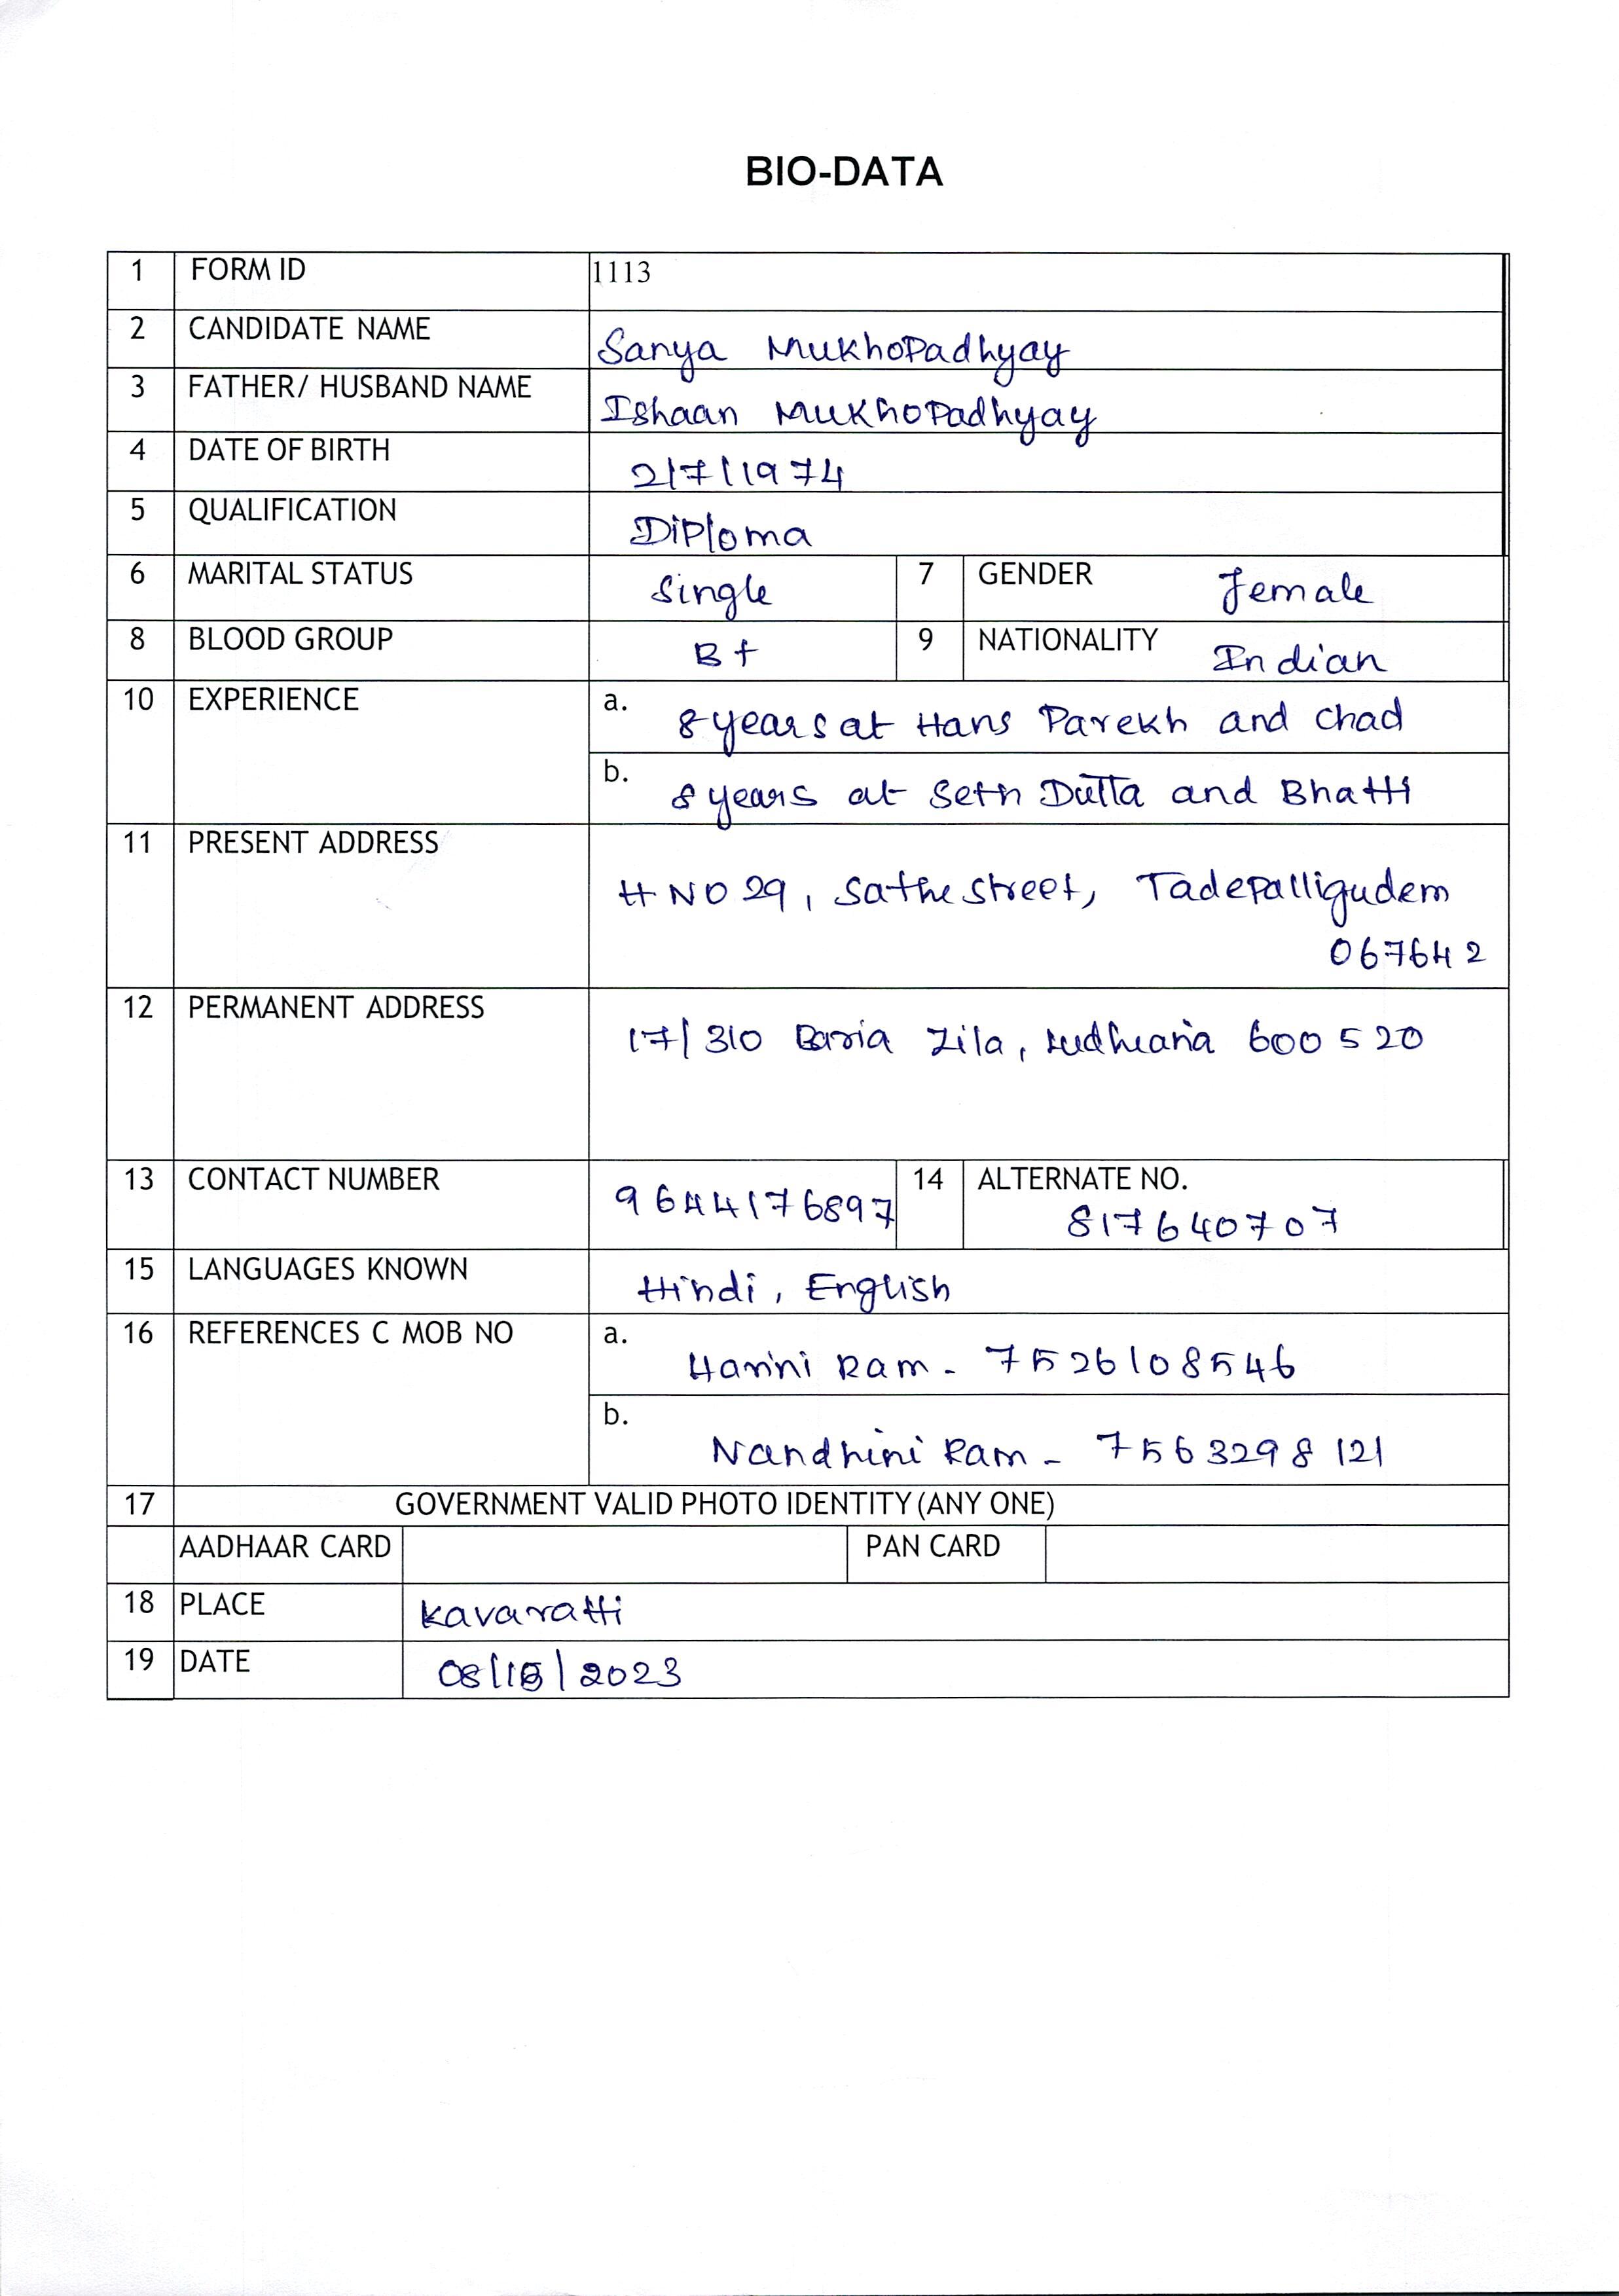 BIO-DATA
1 FORM ID 1113
2 CANDIDATE NAME Sanya Mukhopadhyay
3 FATHER/ HUSBAND NAME Ishaan Mukhopadhyay
4 DATE OF BIRTH 2/7/1974
5 QUALIFICATION Diploma
6 MARITAL STATUS Single 7 GENDER Female
8 BLOOD GROUP B+ 9 NATIONALITY Indian
10 EXPERIENCE a. 8 years at Hans Parekh and Chad
b. 8 years at Seth Dutta and Bhatti
11 PRESENT ADDRESS
H NO 29, Sathe Street, Tadepalligudem
067642
12 PERMANENT ADDRESS
17/310 Baria Zila, Ludhiana 600520
13 CONTACT NUMBER 9644176897 14 ALTERNATE NO.
817640707
15 LANGUAGES KNOWN Hindi, English
16 REFERENCES C MOB NO a. Harini Ram - 7526108546
b. Nandhini Ram - 7563298121
17 GOVERNMENT VALID PHOTO IDENTITY (ANY ONE)
AADHAAR CARD PAN CARD
18 PLACE Kavaratti
19 DATE